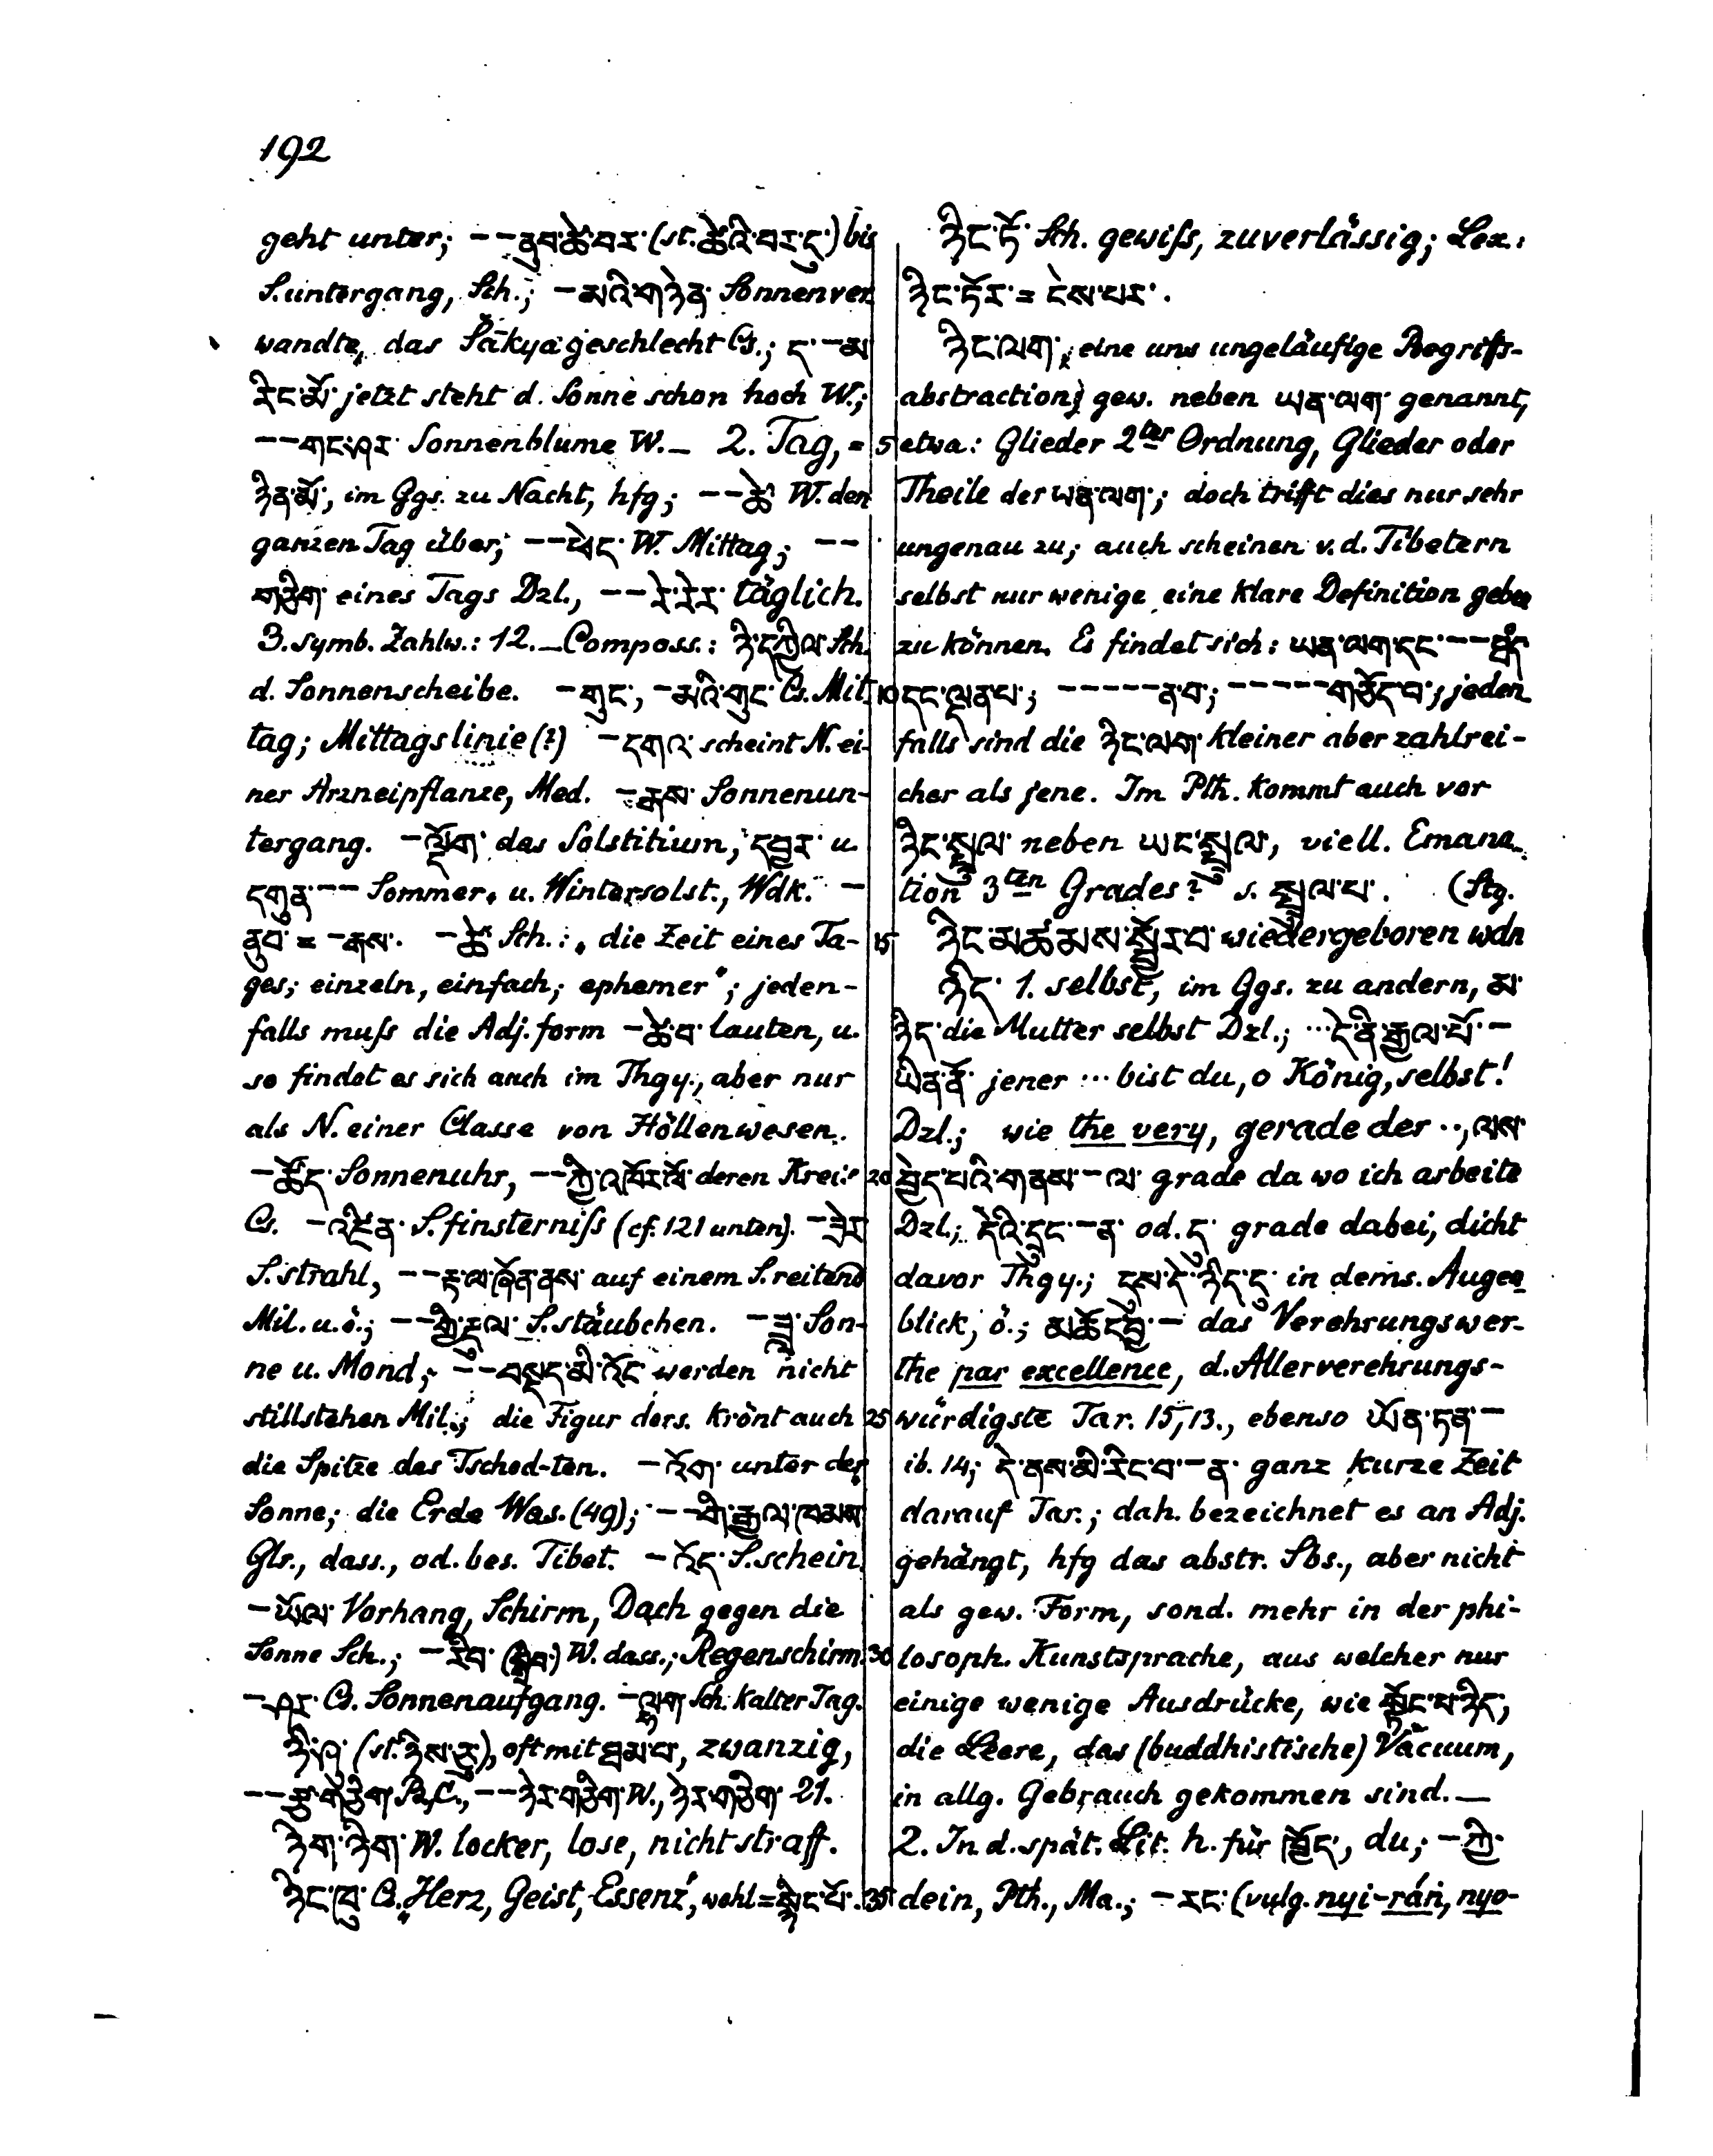 192
geht unter; --ནུབ་ཚེ་བར་ (st. ཚེའི་བར་དུ་) bis
S.untergang, Sch.; -མའི་གཉེན་ Sonnenver
wandte, das Śākyageschlecht Cs.; ད་-མ་
རིང་མོ་ jetzt steht d. Sonne schon hoch W.;
--གང་ཤར་ Sonnenblume W._ 2. Tag, =
ཉིན་མོ་, im Ggs. zu Nacht, hfg; --ཚེ་ W. den
ganzen Tag über; --ཕེད་ W. Mittag; --
གཅིག་ eines Tags Dzl., --རེ་རེར་ täglich.
3. symb. Zahlw.: 12._Composs.: ཉི་དཀྱིལ་ Sch.
d. Sonnenscheibe. -གུང་, -མའི་གུང་ Cs. Mit-
tag; Mittagslinie (?) -དགའ་ scheint N. ei-
ner Arzneipflanze, Med. -རྒས་ Sonnenun-
tergang. -ལྡོག་ das Solstitium, དབྱར་ u.
དགུན་-- Sommer- u. Wintersolst., Wdk. -
ནུབ་ = -རྒས་. -ཚེ་ Sch.: „die Zeit eines Ta-
ges; einzeln, einfach; ephemer"; jeden-
falls muſs die Adj. form -ཚེ་བ་ lauten, u.
so findet es sich auch im Thgy., aber nur
als N. einer Classe von Höllenwesen.
-ཚོད་ Sonnenuhr, --ཀྱི་འཁོར་ལོ་ deren Kreis
Cs. -འཛིན་ S.finsterniſs (cf. 121 unten). -ཟེར་
S.strahl, --རྟ་ལ་ཞོན་ནས་ auf einem S. reitend
Mil. u. ö.; --གྱི་རྡུལ་ S.stäubchen. -ཟླ་ Son-
ne u. Mond; --བསྡད་མི་འོང་ werden nicht
stillstehen Mil.; die Figur ders. krönt auch
die Spitze des Tschod-ten. -འོག་ unter der
Sonne; die Erde Was. (49); --གི་རྒྱལ་ཁམས་
Glr., dass., od. bes. Tibet. -འོད་ S.schein.
-ཡོལ་ Vorhang, Schirm, Dach gegen die
Sonne Sch.; -རིབ་ W. dass.; Regenschirm.
-ཤར་ Cs. Sonnenaufgang. -ལྷག་ Sch. kalter Tag.
ཉི་ཤུ་ (st. ཉིས་ཅུ་), oft mit ཐམ་པ་, zwanzig,
--རྩ་གཅིག་ B, C., --ཉེར་གཅིག་ W., ཉེར་གཅིག་ 21.
ཉིག་ཉིག་ W. locker, lose, nicht straff.
ཉིང་ཁུ་ Cs. „Herz, Geist, Essenz", wohl = སྙིང་པོ་.
ཉིང་ཏོ་ Sch. gewiſs, zuverlässig; Lex.:
ཉིང་ཏོར་ = ངེས་པར་.
ཉིང་ལག་, eine uns ungeläufige Begriffs-
abstraction, gew. neben ཡན་ལག་ genannt,
5 etwa: Glieder 2ter Ordnung, Glieder oder
Theile der ཡན་ལག་; doch trifft dies nur sehr
ungenau zu; auch scheinen v. d. Tibetern
selbst nur wenige eine klare Definition geben
zu können. Es findet sich: ཡན་ལག་དང་--
10 དང་ལྡན་པ་; -----ན་བ་; -----གཅོད་པ་; jeden
falls sind die ཉིང་ལག་ kleiner aber zahlrei-
cher als jene. Im Pth. kommt auch vor
ཉིང་སྤྲུལ་ neben ཡང་སྤྲུལ་, viell. Emana-
tion 3ten Grades? s. སྤྲུལ་པ་. (Stg.
15 ཉིང་མཚམས་སྦྱོར་བ་ wiedergeboren wdn
ཉིད་ 1. selbst, im Ggs. zu andern, མ་
ཉིད་ die Mutter selbst Dzl.; ...དེ་ནི་རྒྱལ་པོ་-
ཡིན་ནོ་ jener ... bist du, o König, selbst!
Dzl.; wie the very, gerade der .., ལས་
20 བྱེད་པའི་གནས་-ལ་ grade da wo ich arbeite
Dzl.; དེའི་དྲུང་-ན་ od. དུ་ grade dabei, dicht
davor Thgy.; དུས་དེ་ཉིད་དུ་ in dems. Augen
blick, ö.; མཆོད་བྱ་- das Verehrungswer-
the par excellence, d. Allerverehrungs-
25 würdigste Tar. 15,13., ebenso ཡོན་ཏན་-
ib. 14; དེ་ནས་མི་རིང་བ་-ན་ ganz kurze Zeit
darauf Tar.; dah. bezeichnet es an Adj.
gehängt, hfg das abstr. Sbs., aber nicht
als gew. Form, sond. mehr in der phi-
30 losoph. Kunstsprache, aus welcher nur
einige wenige Ausdrücke, wie སྟོང་པ་ཉིད་,
die Leere, das (buddhistische) Vacuum,
in allg. Gebrauch gekommen sind.—
2. In d. spät. Lit. h. für ཁྱོད་, du; -ཀྱི་
35 dein, Pth., Ma.; -རང་ (vulg. nyi-ráṅ, nyo-